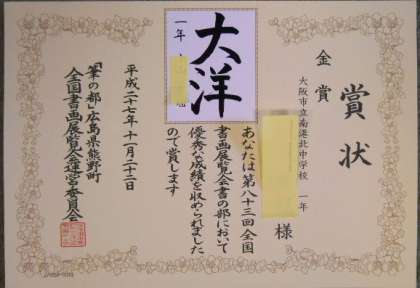 賞状
金賞
大阪市立南港北中学校 一年
様
大洋
一年
あなたは第八十三回全国
書画展覧会書の部において
優秀な成績を収められました
ので賞します
平成二十七年十一月二十二日
「筆の都」広島県熊野町
全国書画展覧会運営委員会